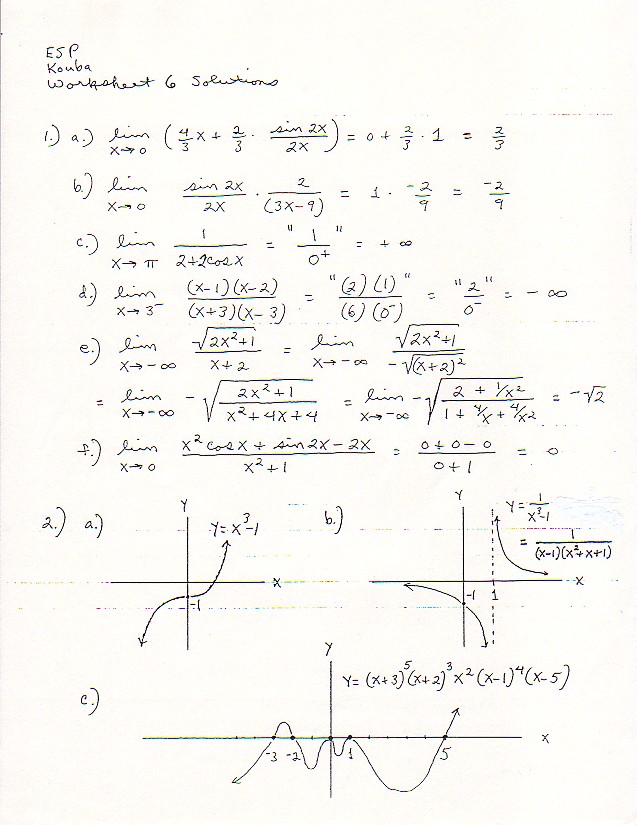 ESP
Kouba
Worksheet 6 Solutions
1.) a.) lim x→0 (4/3 x + 2/3 · sin 2x / 2x) = 0 + 2/3 · 1 = 2/3
b.) lim x→0 sin 2x / 2x · 2 / (3x-9) = 1 · -2/9 = -2/9
c.) lim x→π 1 / (2+2cos x) = " 1 / 0⁺ " = + ∞
d.) lim x→3⁻ (x-1)(x-2) / (x+3)(x-3) = " (2)(1) / (6)(0⁻) " = " 2 / 0⁻ " = - ∞
e.) lim x→-∞ √(2x²+1) / (x+2) = lim x→-∞ √(2x²+1) / -√((x+2)²)
= lim x→-∞ - √((2x²+1) / (x²+4x+4)) = lim x→-∞ - √((2 + 1/x²) / (1 + 4/x + 4/x²)) = -√2
f.) lim x→0 (x² cos x + sin 2x - 2x) / (x²+1) = (0+0-0) / (0+1) = 0
2.) a.) Y Y = x³-1 x -1
b.) Y Y = 1 / (x³-1) = 1 / (x-1)(x²+x+1) x -1 1
c.) Y Y = (x+3)⁵(x+2)³x²(x-1)⁴(x-5) x
-3 -2 1 5